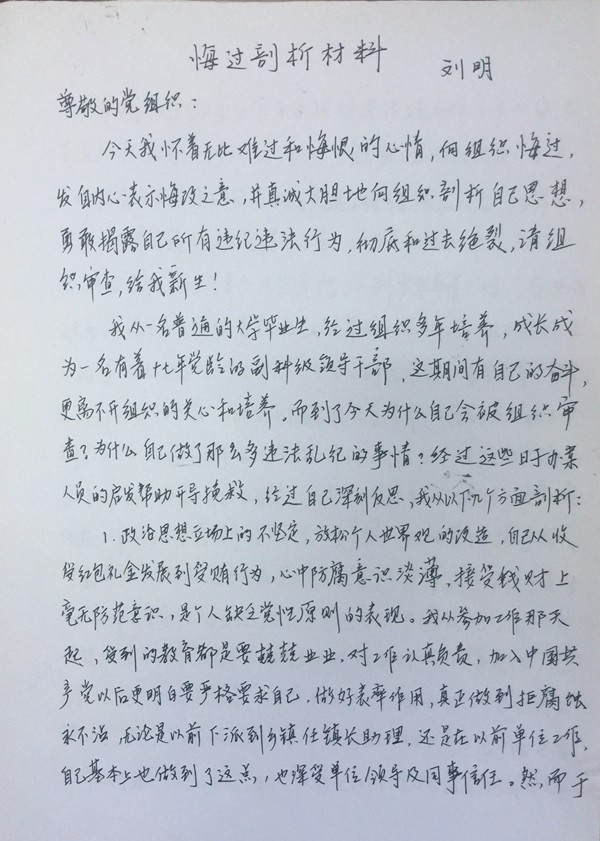 悔过剖析材料
刘明
尊敬的党组织：
今天我怀着无比难过和悔恨的心情，向组织悔过，
发自内心表示悔改之意，并真诚大胆地向组织剖析自己思想，
勇敢揭露自己所有违纪违法行为，彻底和过去绝裂，请组
织审查，给我新生！
我从一名普通的大学毕业生，经过组织多年培养，成长成
为一名有着十七年党龄的副科级领导干部，这期间有自己的奋斗，
更离不开组织的关心和培养。而到了今天为什么自己会被组织审
查？为什么自己做了那么多违法乱纪的事情？经过这些日子办案
人员的启发帮助开导挽救，经过自己深刻反思，我从以下几个方面剖析：
1. 政治思想立场上的不坚定，放松个人世界观的改造，自己从收
受红包礼金发展到受贿行为，心中防腐意识淡薄，接受钱财上
毫无防范意识，是个人缺乏党性原则的表现。我从参加工作那天
起，受到的教育都是要兢兢业业，对工作认真负责，加入中国共
产党以后更明白要严格要求自己，做好表率作用，真正做到拒腐蚀
永不沾，无论是以前下派到乡镇任镇长助理，还是在以前单位工作，
自己基本上也做到了这点，也深受单位领导及同事信任。然而于